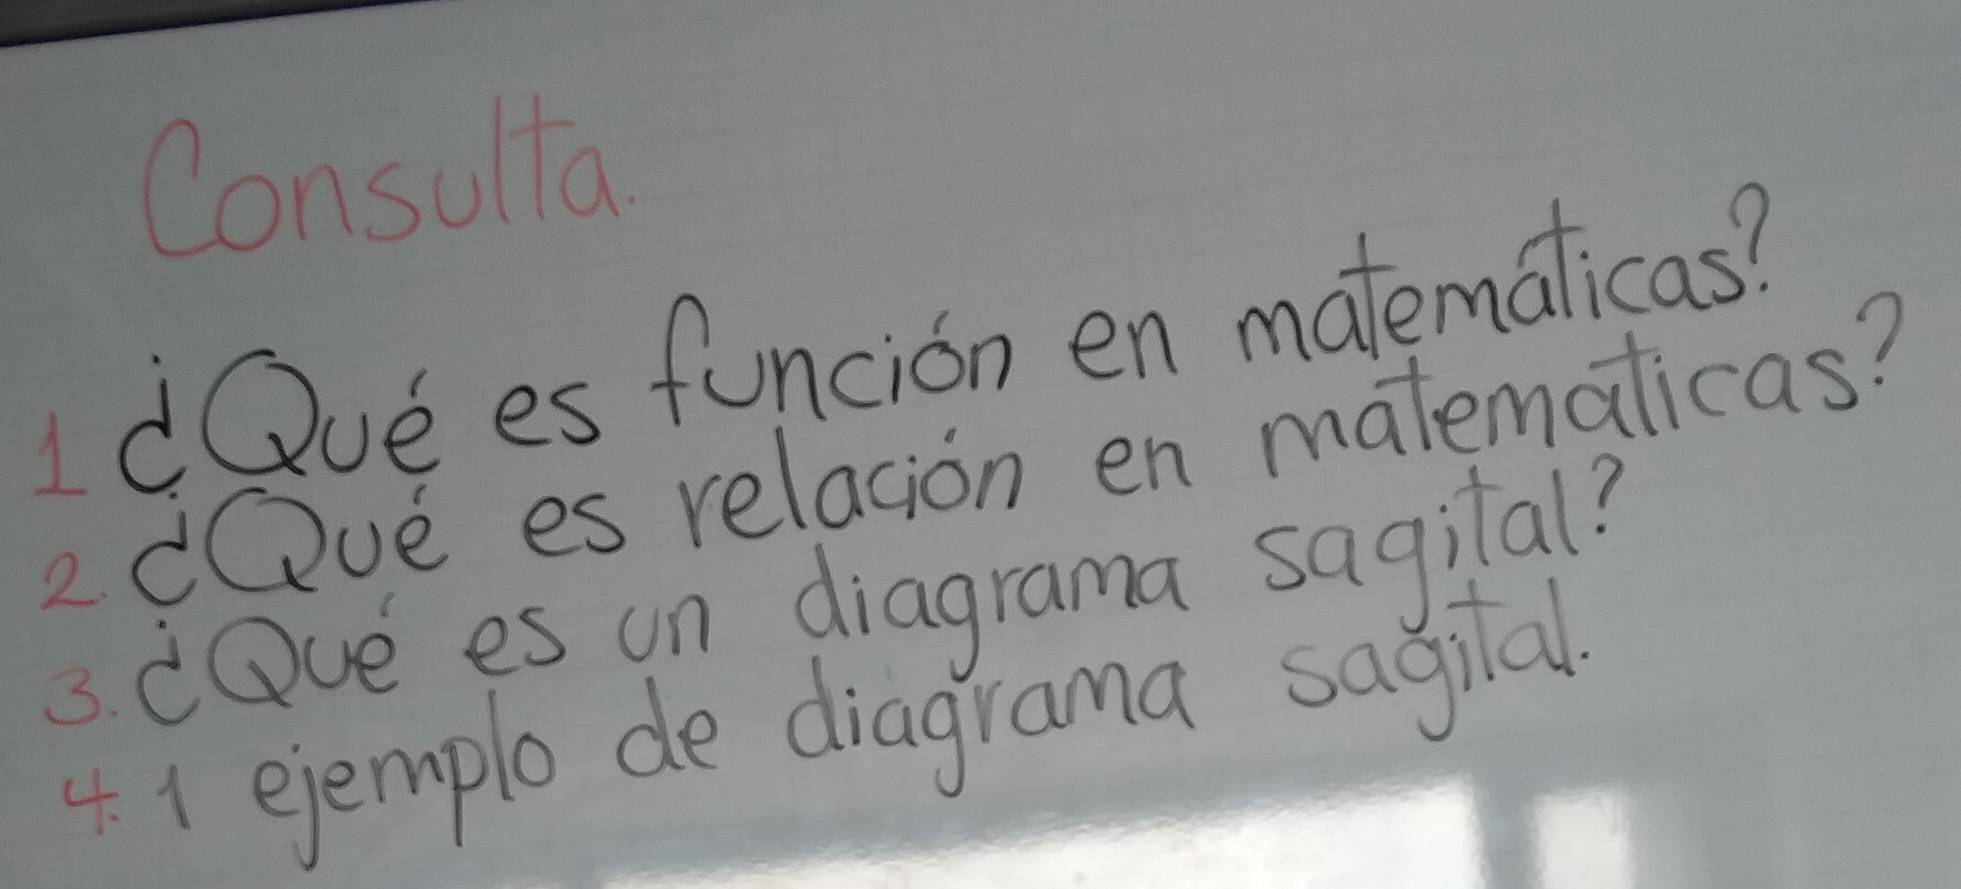 Consulta.
1 ¿Qué es función en matemáticas?
2. ¿Qué es relación en matematicas?
3. ¿Qué es un diagrama sagital?
4. 1 ejemplo de diagrama sagital.